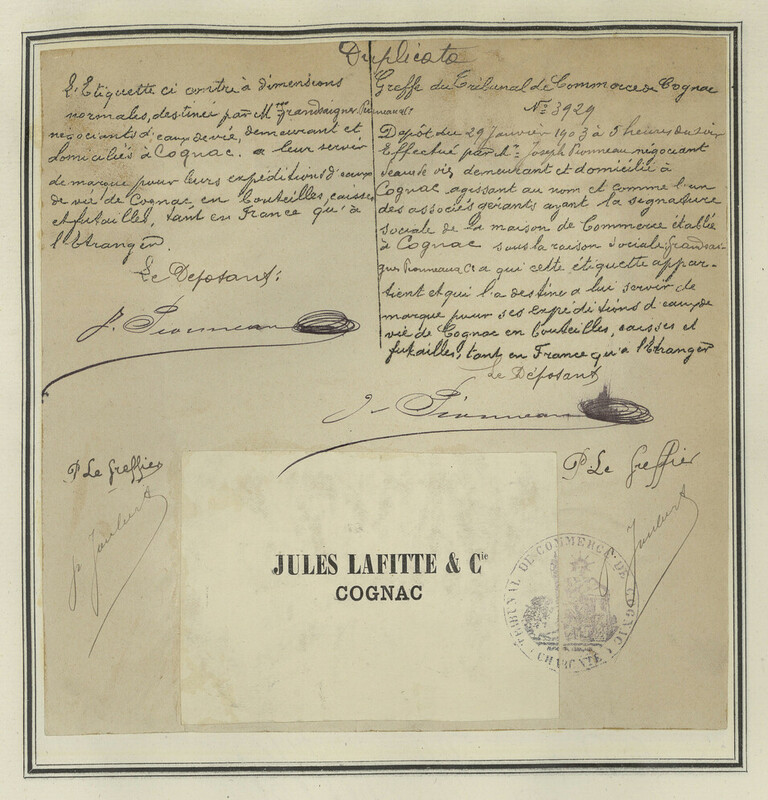 Duplicata
L'Etiquette ci contre à dimensions
normales, destinée par M^rs Grandsaigne, Pionneau & C^ie
négociants d'eaux de vie, demeurant et
domiciliés à Cognac, a leur servir
de marque pour leurs expéditions d'eaux
de vie de Cognac en bouteilles, caisses
et futailles, tant en France qu'à
l'Etranger.
Le Déposant:
J. Pionneau
Greffe du Tribunal de Commerce de Cognac
N° 3929
Dépôt du 29 Janvier 1903 à 5 heures du soir
Effectué par M^r Joseph Pionneau négociant
d'eaux de vie, demeurant et domicilié à
Cognac agissant au nom et comme l'un
des associés gérants ayant la signature
sociale de la maison de Commerce établie
à Cognac sous la raison sociale Grandsai-
gne Pionneau & C^ie a qui cette étiquette appar-
tient et qui l'a destine a lui servir de
marque pour ses expéditions d'eaux de
vie de Cognac en bouteilles, caisses et
futailles, tant en France qu'a l'Etranger
Le Déposant
J. Pionneau
P^r Le Greffier
Joubert
P^r Le Greffier
Joubert
JULES LAFITTE & C^ie
COGNAC
TRIBUNAL DE COMMERCE DE COGNAC
(CHARENTE)